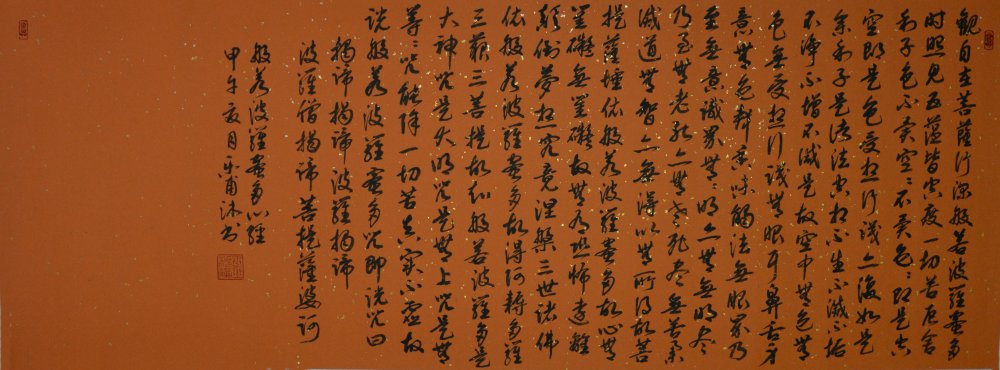 觀自在菩薩行深般若波羅蜜多
時照見五蘊皆空度一切苦厄舍
利子色不異空〻不異色〻即是空
空即是色受想行識亦復如是
舍利子是諸法空相不生不滅不垢
不淨不增不減是故空中無色無
色無受想行識無眼耳鼻舌身
意無色聲香味觸法無眼界乃
至無意識界無〻明亦無無明盡
乃至無老死亦無老死盡無苦集
滅道無智亦無得以無所得故菩
提薩埵依般若波羅蜜多故心無
罣礙無罣礙故無有恐怖遠離
顛倒夢想究竟涅槃三世諸佛
依般若波羅蜜多故得阿耨多羅
三藐三菩提故知般若波羅多是
大神咒是大明咒是無上咒是無
等〻咒能除一切苦真實不虛故
說般若波羅蜜多咒即說咒曰
揭諦揭諦波羅揭諦
波羅僧揭諦菩提薩婆訶
般若波羅蜜多心經
甲午夏月沐書